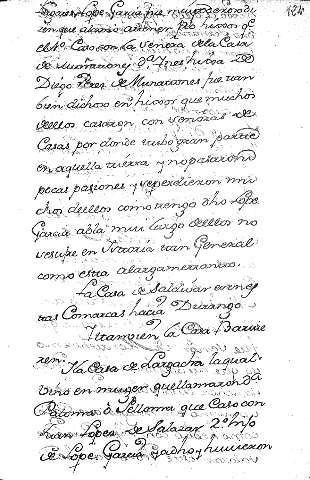 124
Lugares, Lope Garcia fue muy poderoso di
cen que alcanzo a tener hixos q.e
el 1.o Caso con la Señora de la Casa
de Muñatones, y D.a Ines hixa de
Diego Perez de Muñatones fue tam
bien dichoso en hixos que muchos
de ellos casaron con señoras de
Casas por donde hubo gran parte
en aquella tierra y no pasaron
pocas pasiones y se perdieron mu
chos de ellos como tengo dho Lope
Garcia abia muy largo de ellos no
se sufre en Ystoria tan General
como esta alargarme tanto.
La Casa de Saldivar en nes
tras Comarcas hacia Durango
Ytambien la Casa
ren.
Y la Casa de Largacha la qual
vino en muger que llamaron D.a
Paloma o Velloma que Caso con
Juan Lopez de Salazar 2.o hijo
de Lope Garcia ya dho y huvieron